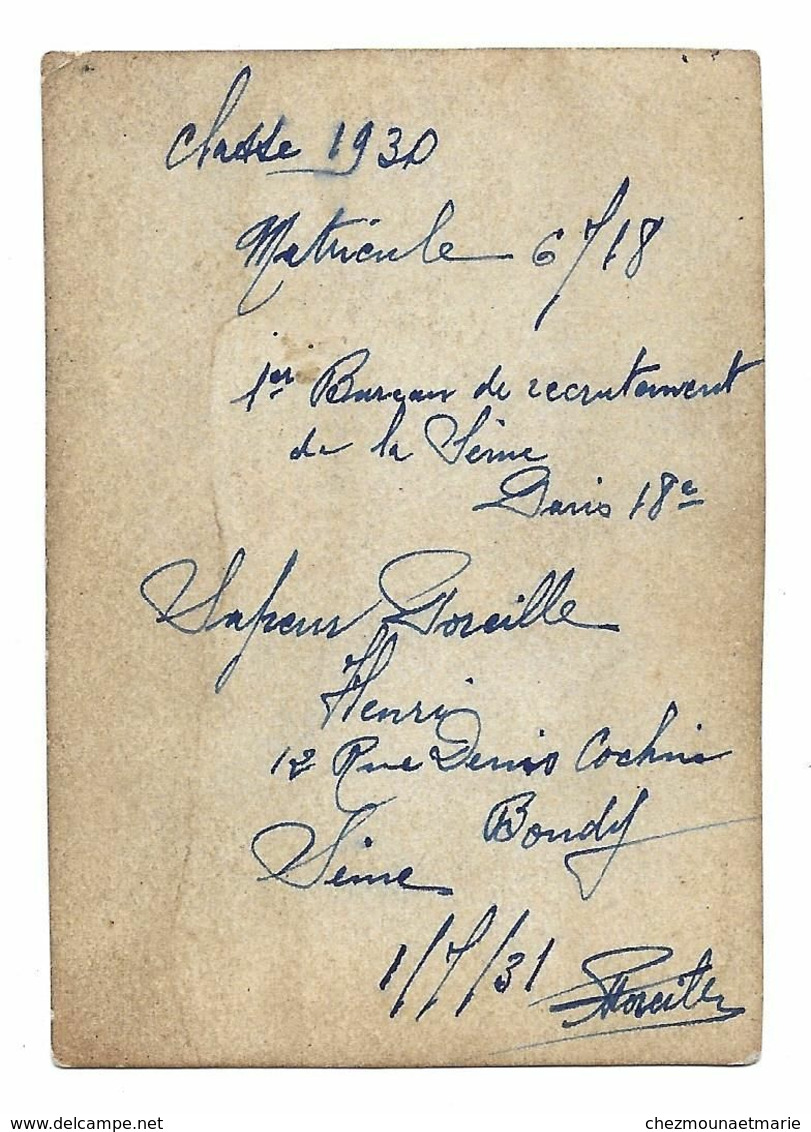 Classe 1930
Matricule 6718
1er Bureau de recrutement
de la Seine
Paris 18e
Sapeur Poreille
Henri
12 Rue Denis Cochin
Bondy
Seine
1/7/31
delcampe.net
chezmounaetmarie